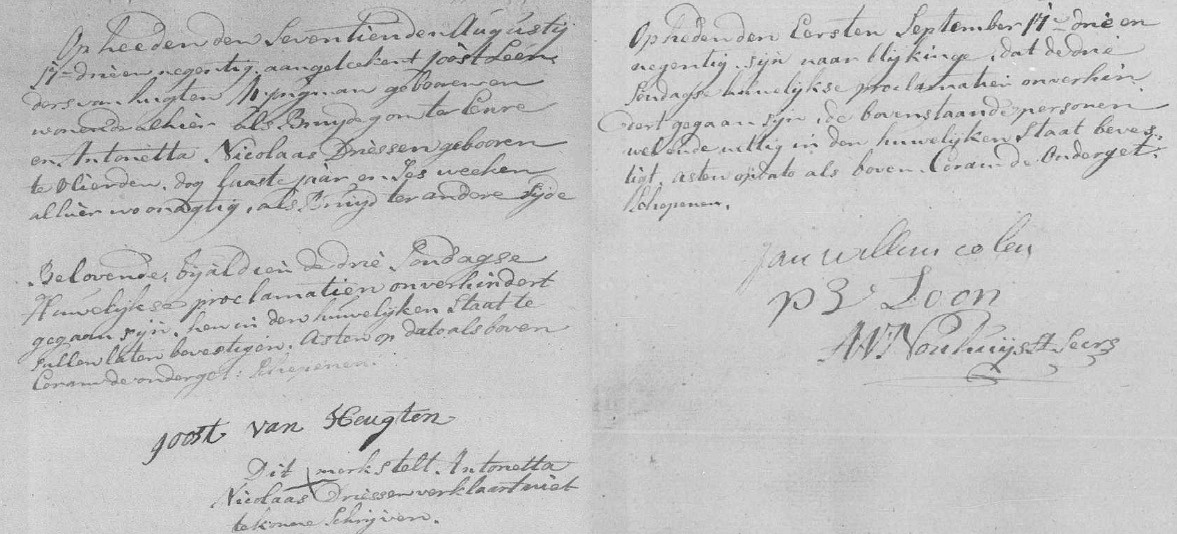 Op heeden den Seventienden Augustij
17= drie en negentig, aangeteekent Joost Leen,
ders van hugten, Jongman gebooren en
wonende alhier als Bruydegom ter Eenre
en Antonetta Nicolaas Driessen gebooren
te Vlierden, dog laaste jaar en Ses weeken
alhier woonagtig, als Bruijd ter andere Sijde
Belovende, bijaldien de drie Sondagse
Huwelijkse proclamatien onverhindert
gegaan sijn, hen in den huwelijken Staat te
sullen laten bevestigen. Asten op dato als boven
Coram de onderget: Schepenen.
Joost van Heugten
Dit merk stelt Antonetta
Nicolaas Driessen verklaart niet
te konne Schrijven.
Op heden den Eersten September 17= drie en
negentig sijn naar blijkinge, dat de drie
Sondagse huwelijkse proclamatien onverhin
dert gegaan sijn, de bovenstaande personen
wettig in den huwelijken Staat beves,
tigt, Asten op dato als boven. Coram de Onderget:
Schepenen.
Jan willem colen
P Loon
Secrs